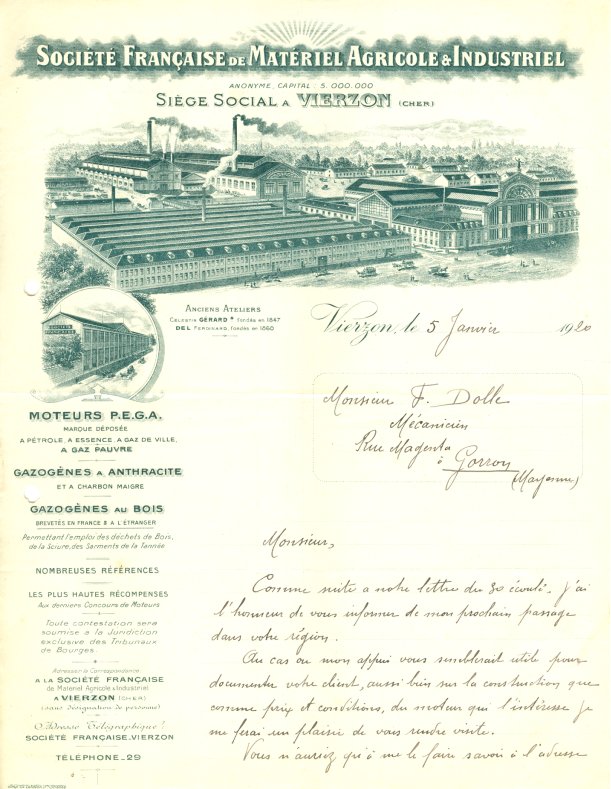 SOCIÉTÉ FRANÇAISE DE MATÉRIEL AGRICOLE & INDUSTRIEL
ANONYME, CAPITAL : 5.000.000
SIÈGE SOCIAL A VIERZON (CHER)
ANCIENS ATELIERS
CÉLESTIN GÉRARD * fondés en 1847
DEL FERDINAND, fondés en 1860
SOCIÉTÉ
FRANÇAISE
Vierzon, le 5 Janvier 1920
Monsieur F. Dolle
Mécanicien
Rue Magenta
à Gorron
(Mayenne)
MOTEURS P.E.G.A.
MARQUE DÉPOSÉE
A PÉTROLE, A ESSENCE, A GAZ DE VILLE,
A GAZ PAUVRE
GAZOGÈNES A ANTHRACITE
ET A CHARBON MAIGRE
GAZOGÈNES AU BOIS
BREVETÉS EN FRANCE & A L'ÉTRANGER
Permettant l'emploi des déchets de Bois,
de la Sciure, des Sarments de la Tannée
NOMBREUSES RÉFÉRENCES
LES PLUS HAUTES RÉCOMPENSES
Aux derniers Concours de Moteurs
Toute contestation sera
soumise à la Juridiction
exclusive des Tribunaux
de Bourges
Adresser la Correspondance:
A LA SOCIÉTÉ FRANÇAISE
de Matériel Agricole & Industriel
A VIERZON (CHER)
(sans désignation de personne)
Adresse Télégraphique:
SOCIÉTÉ FRANÇAISE.VIERZON
TÉLÉPHONE_29
Monsieur,
Comme suite a notre lettre du 30 écoulé. J'ai
l'honneur de vous informer de mon prochain passage
dans votre région.
Au cas ou mon appui vous semblerait utile pour
documenter votre client, aussi bien sur la construction que
comme prix et conditions, du moteur qui l'intéresse je
me ferai un plaisir de vous rendre visite.
Vous n'auriez qu'à me le faire savoir à l'adresse